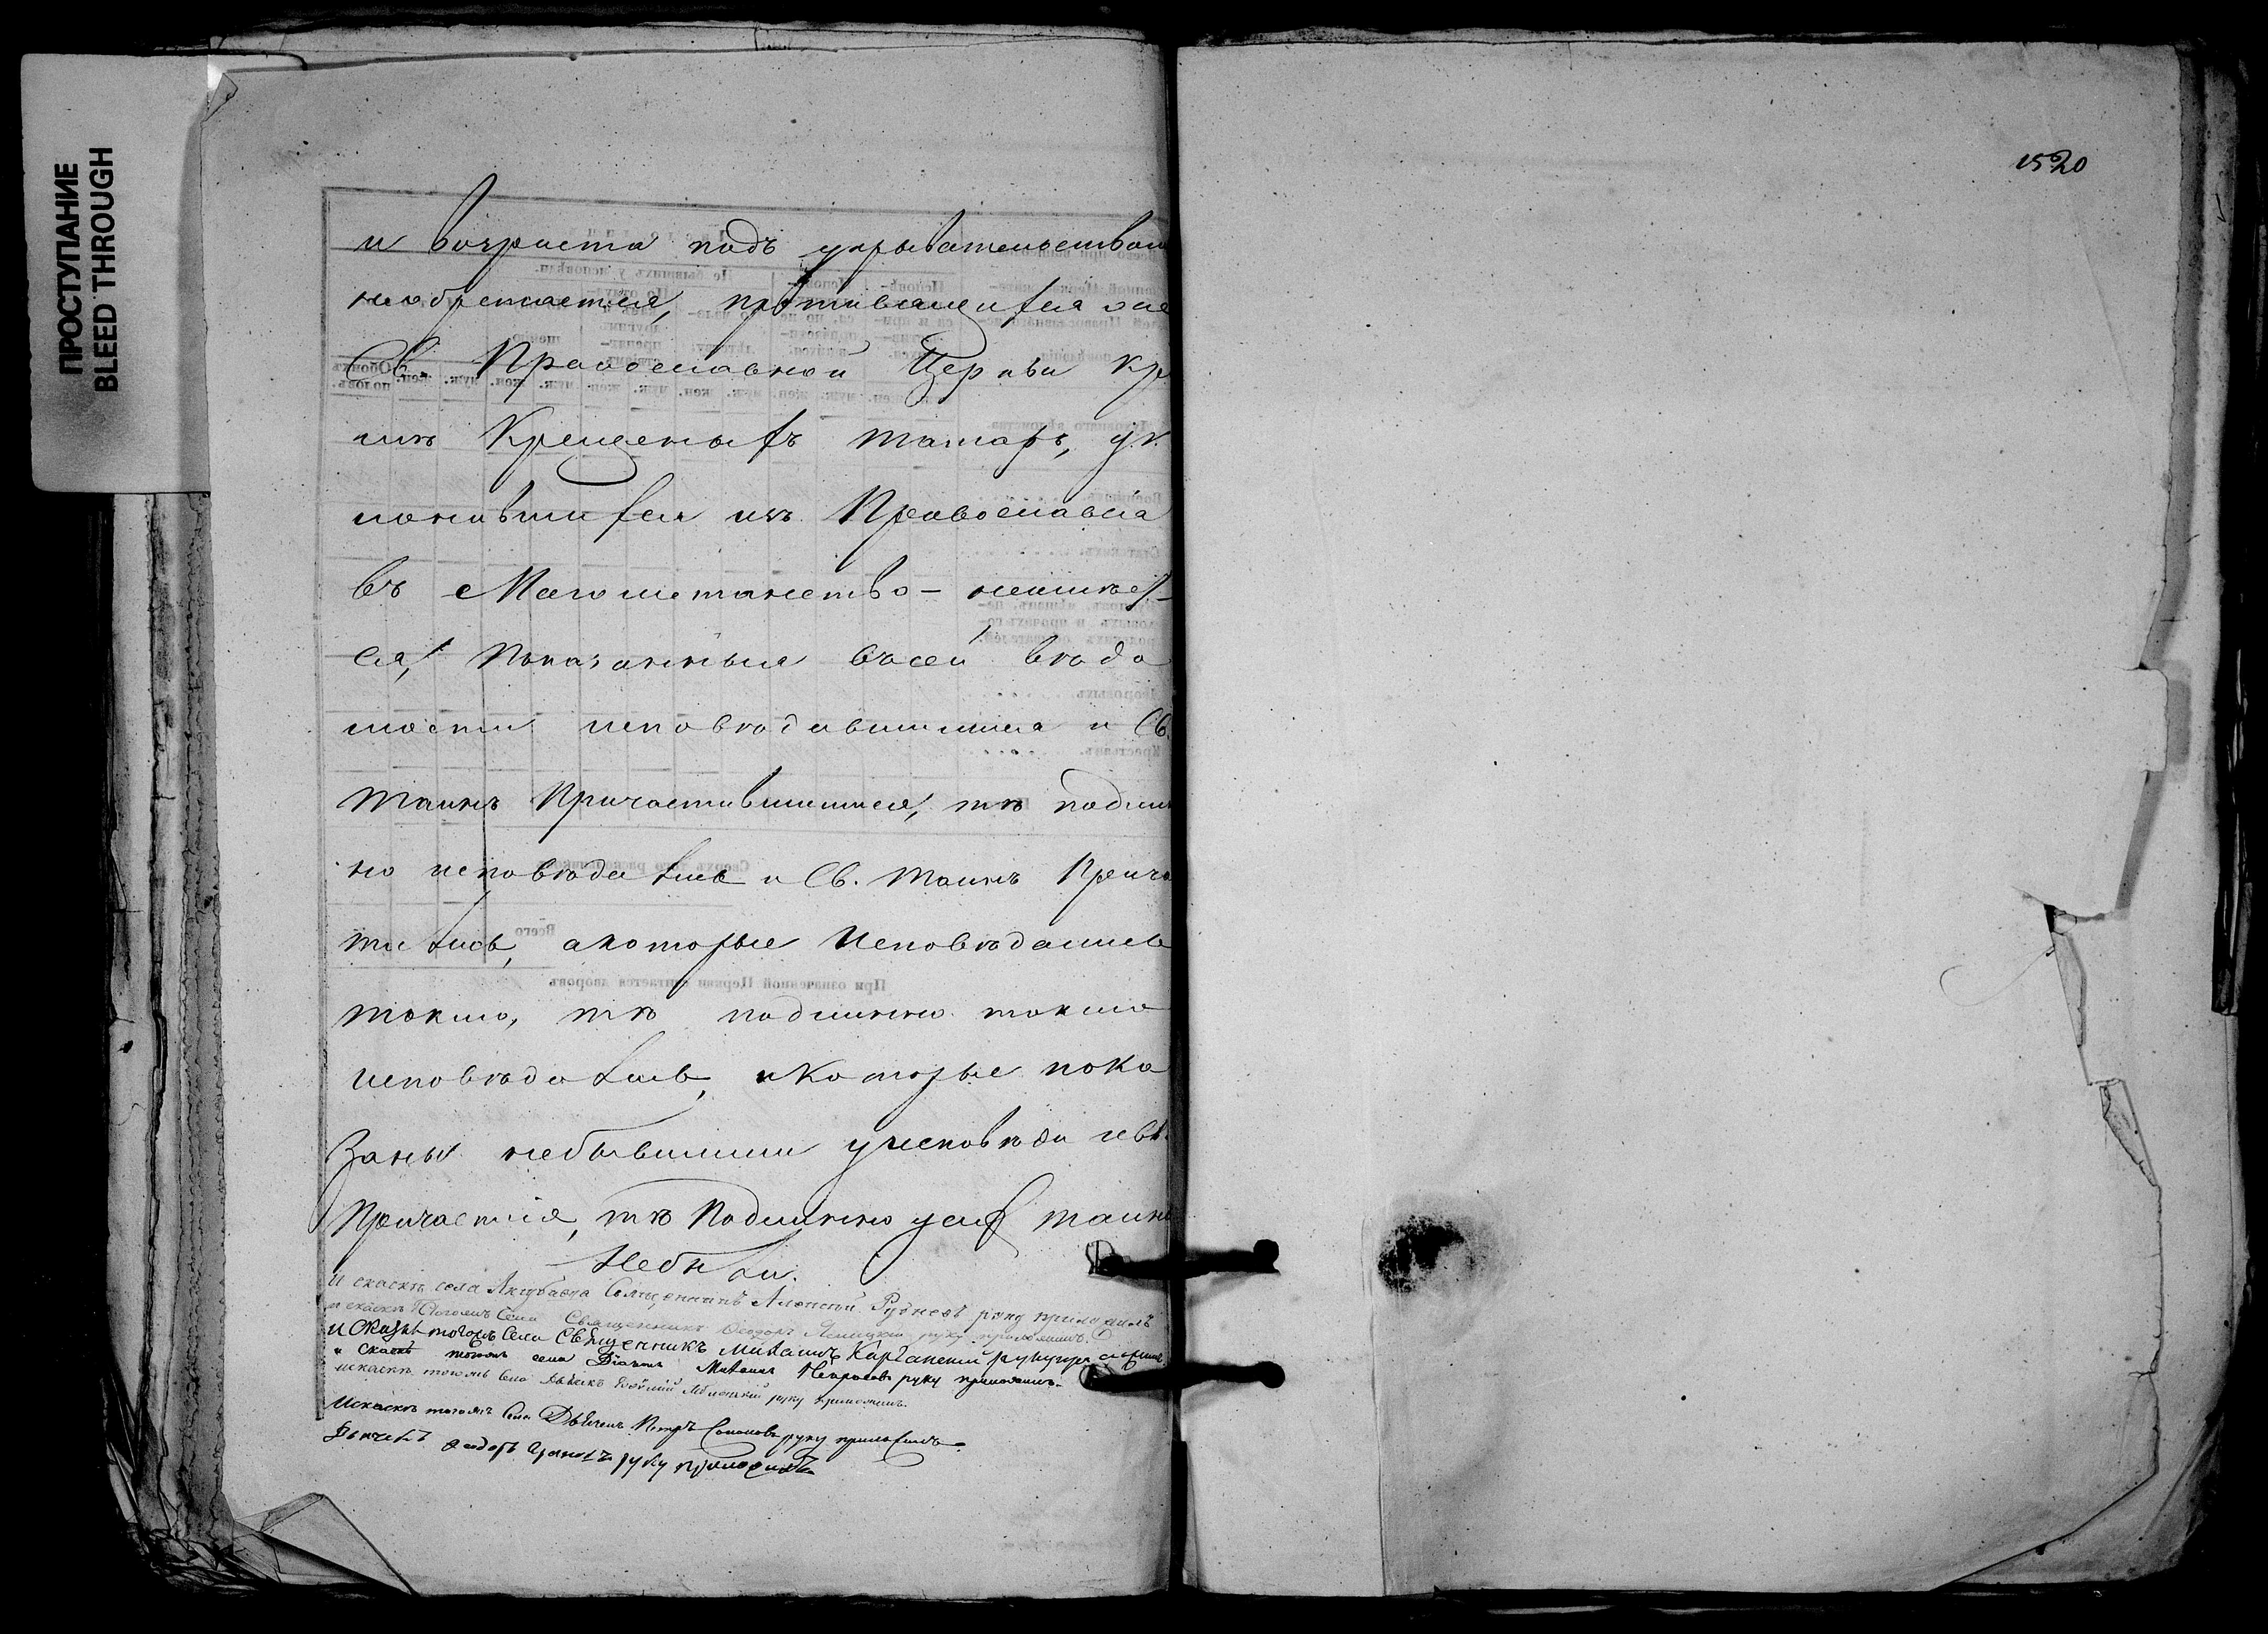 ПРОСТУПАНИЕ
BLEED THROUGH
1520
и возраста подъ укрывательством
необретается, противящихся же
Св. Православной Церкви кр
мѣ Крещеныхъ татаръ, ук
лонившихся изъ Православія
въ Магометанство – неимѣет
ся, показанныя въсей вѣдо
мости исповѣдавшимися и Св.
Таинъ Причастившимися, тѣ подлин
но исповѣдались и Св. Таинъ Прича
тились, а которые Исповѣдались
токмо, тѣ подлинно токмо
исповѣдались, и которые пока
заны небывшими уисповѣди и Св.
Причастія, тѣ Подлинно усих таинъ
Небыли.
и скаскѣ села Священникъ Алексій Рудневъ руку приложилъ
и скаскѣ тогожъ Села Священникъ Ѳеодоръ руку приложилъ.
и скаскѣ тогожъ Села Священникъ Михаилъ руку приложилъ
и скаскѣ тогожъ села Діаконъ Михаилъ руку приложилъ.
искаскѣ тогожъ Села Дьячекъ руку приложилъ.
Искаскѣ тогожъ Села Дьячекъ Петръ Соколовъ руку приложилъ.
Дьячекъ Ѳеодоръ руку приложилъ